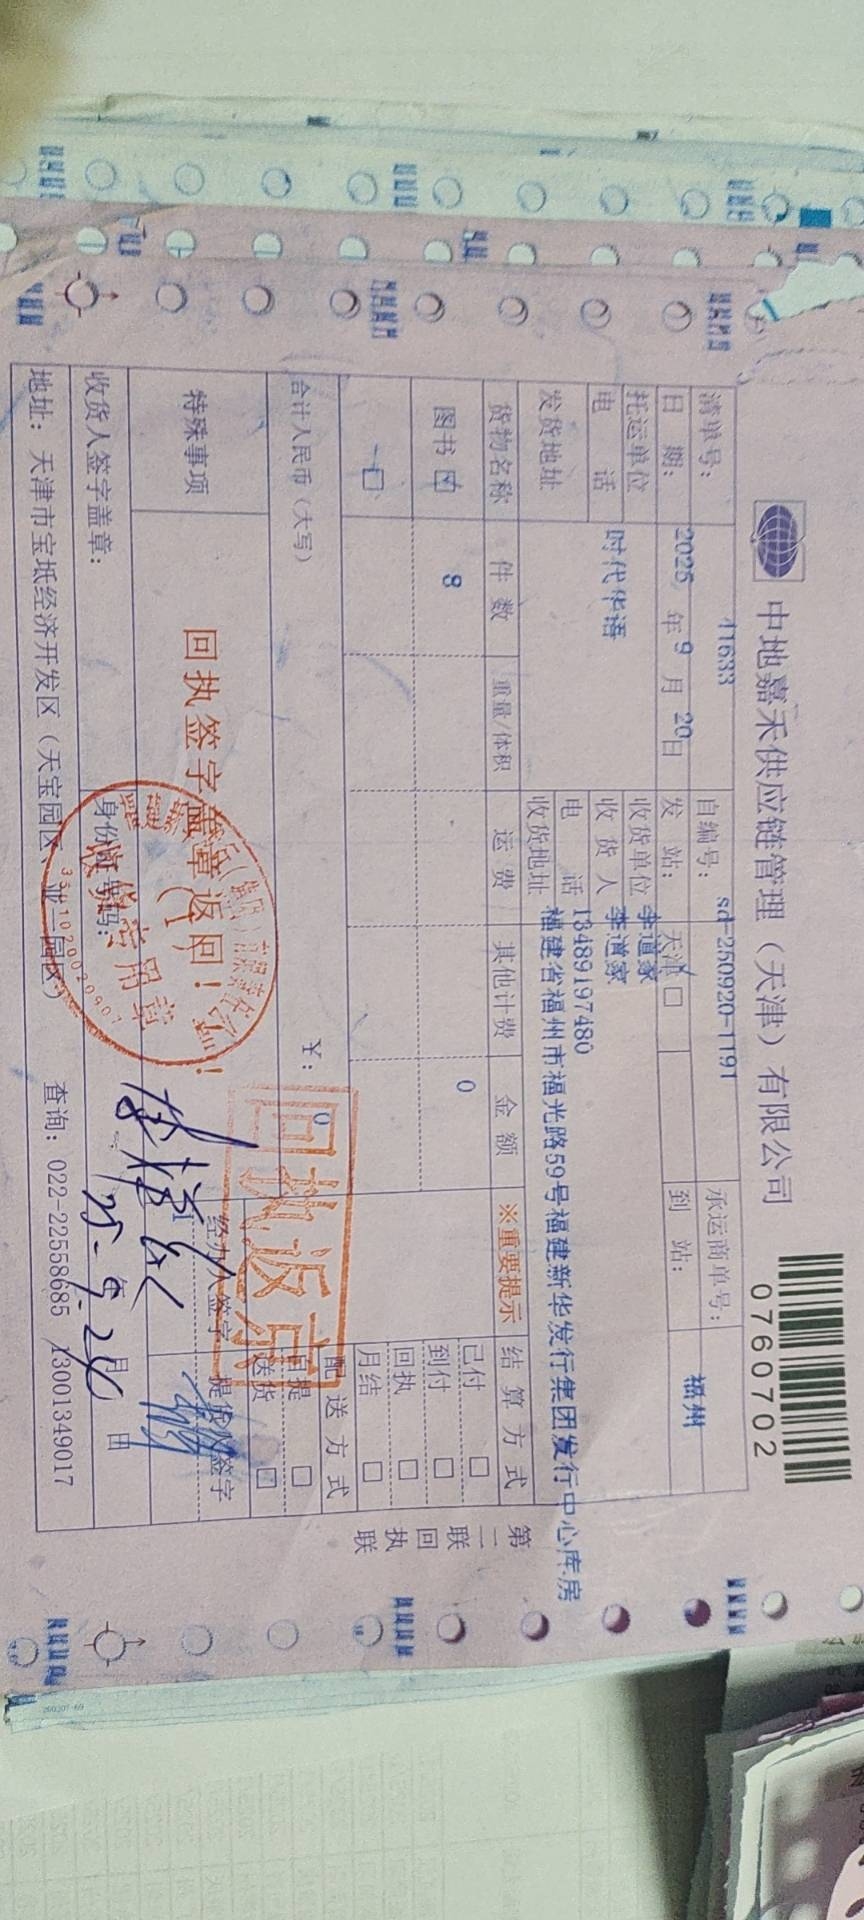 中地嘉禾供应链管理（天津）有限公司
0760702
清单号： 41633 自编号： sd-250920-1191 承运商单号：
日 期： 2025 年 9 月 20 日 发 站： 天津 到 站： 福州
托运单位 时代华语 收货单位 李道家
收 货 人 李道家
电 话 电 话 13489197480
发货地址 收货地址 福建省福州市福光路59号福建新华发行集团发行中心库房
货物名称 件 数 重量/体积 运 费 其他计费 金 额 ※重要提示 结 算 方 式
图书 8 0 已付 □
到付 □
回执 □
月结 □
合计人民币（大写） ￥： 0 配 送 方 式
自提 □
送货 □
特殊事项 回执签字盖章返回！
回执返京
经办人签字 提货人签字
收货人签字盖章： 身份证号码： 25-9-24 月 日
收货专用章
地址：天津市宝坻经济开发区（天宝园区、亚二园区） 查询：022-22558685 13001349017
第二联 回执联